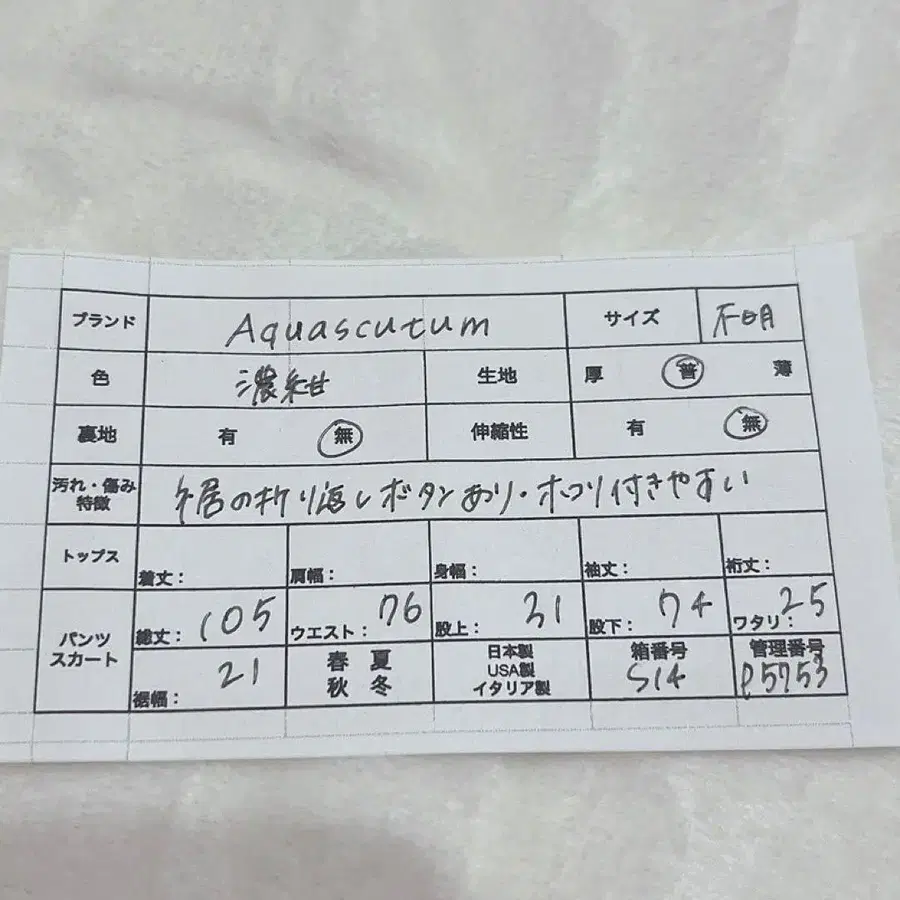 ブランド Aquascutum サイズ 不明
色 濃紺 生地 厚 普 薄
裏地 有 無 伸縮性 有 無
汚れ・傷み
特徴
裾の折り返しボタンあり・ホコリ付きやすい
トップス 着丈: 肩幅: 身幅: 袖丈: 裄丈:
パンツ
スカート
総丈: 105 ウエスト: 76 股上: 31 股下: 74 ワタリ: 25
裾幅: 21
春 夏
秋 冬
日本製
USA製
イタリア製
箱番号
S14
管理番号
P5753